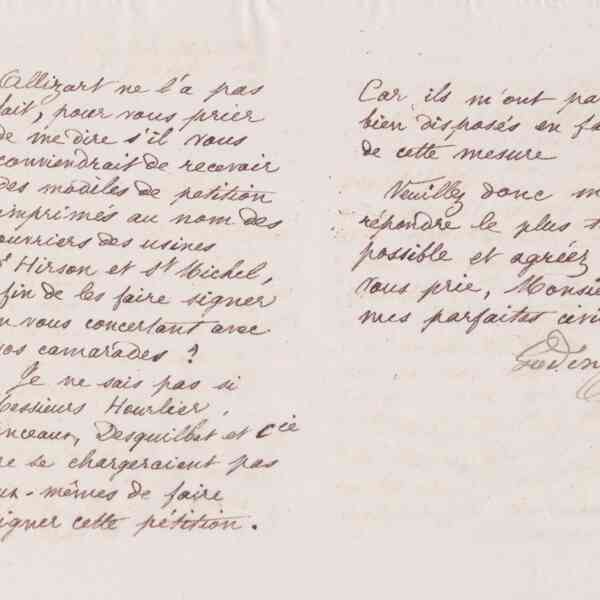 Allizart ne l'a pas
fait, pour vous prier
de me dire s'il vous
conviendrait de recevoir
des modèles de petition
imprimés au nom des
ouvriers des usines
Hirson et St Michel,
fin de les faire signer
en vous concertant avec
vos camarades ?
Je ne sais pas si
Messieurs Hourlier,
Desquilbet et Cie
ne se chargeraient pas
eux-mêmes de faire
signer cette pétition.
Car ils m'ont pa
bien disposés en fa
de cette mesure
Veuillez donc m
répondre le plus t
possible et agréez
vous prie, Monsie
mes parfaites civi